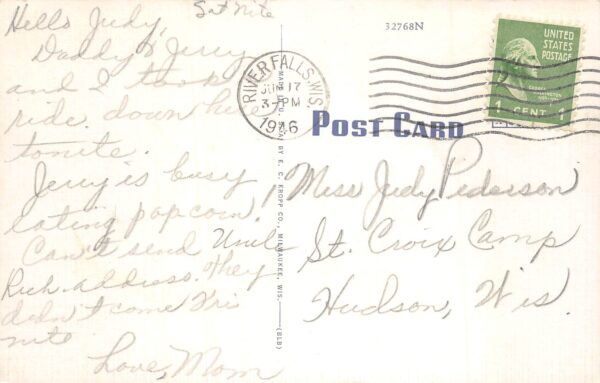 Sat Nite
Hello Judy,
Daddy & Jerry
and I took
ride down here
tonite.
Jerry is busy
eating popcorn.
Can't send Uncle
Rich. address. They
didn't come Fri
nite
Love, Mom
MADE BY E. C. KROPP CO., MILWAUKEE, WIS.
(BLB)
32768N
RIVER FALLS, WIS.
JUN 17
3-PM
1946
UNITED
STATES
POSTAGE
GEORGE
WASHINGTON
1 CENT 1
POST CARD
Miss Judy Pederson
St. Croix Camp
Hudson, Wis.